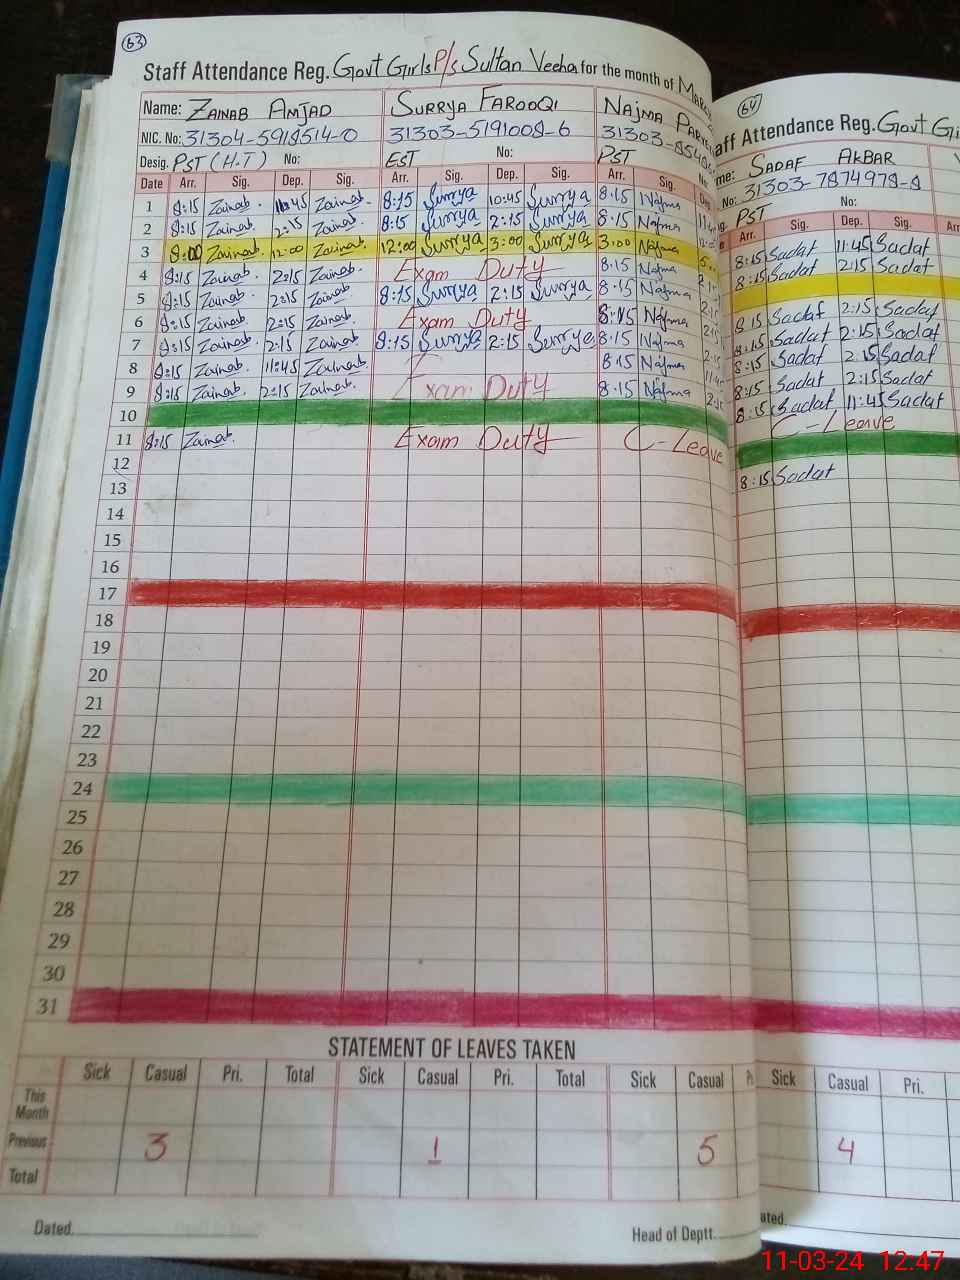 63
Staff Attendance Reg. Govt Girls P/s Sultan Veeha for the month of March
Name: ZAINAB AMJAD SURRYA FAROOQI NAJMA
NIC. No: 31304-5918514-0 31303-5191008-6 31303-
Desig. PST (H-T) No: EST No: PST No:
Date Arr. Sig. Dep. Sig. Arr. Sig. Dep. Sig. Arr. Sig.
1 8:15 Zainab. 11:45 Zainab. 8:15 Surrya 10:45 Surrya 8.15 Najma
2 8:15 Zainab. 2:15 Zainab. 8:15 Surrya 2:15 Surrya 8.15 Najma
3 8:00 Zainab. 12:00 Zainab. 12:00 Surrya 3:00 Surrya 3.00 Najma
4 8:15 Zainab. 2:15 Zainab. Exam Duty 8.15 Najma
5 8:15 Zainab. 2:15 Zainab. 8:15 Surrya 2:15 Surrya 8.15 Najma
6 8:15 Zainab. 2:15 Zainab. Exam Duty 8:15 Najma
7 8:15 Zainab. 2:15 Zainab. 8:15 Surrya 2:15 Surrya 8.15 Najma
8 8:15 Zainab. 11:45 Zainab. 8.15 Najma
9 8:15 Zainab. 2:15 Zainab. Exam Duty 8.15 Najma
10
11 8:15 Zainab. Exam Duty C-Leave
12
13
14
15
16
17
18
19
20
21
22
23
24
25
26
27
28
29
30
31
STATEMENT OF LEAVES TAKEN
Sick Casual Pri. Total Sick Casual Pri. Total Sick Casual
This Month
Previous 3 1 5
Total
Dated. Head of Deptt.
64
aff Attendance Reg. Govt Gi
me: SADAF AKBAR
No: 31303-7874978-8
PST
Arr. Sig. Dep. Sig. Arr
8:15 Sadaf 11:45 Sadaf
8:15 Sadaf 2:15 Sadaf
8:15 Sadaf 2:15 Sadaf
8:15 Sadaf 2:15 Sadaf
8:15 Sadaf 2:15 Sadaf
8:15 Sadaf 2:15 Sadaf
8:15 Sadaf 11:45 Sadaf
C-Leave
8:15 Sadaf
Sick Casual Pri.
4
ated.
11-03-24 12:47